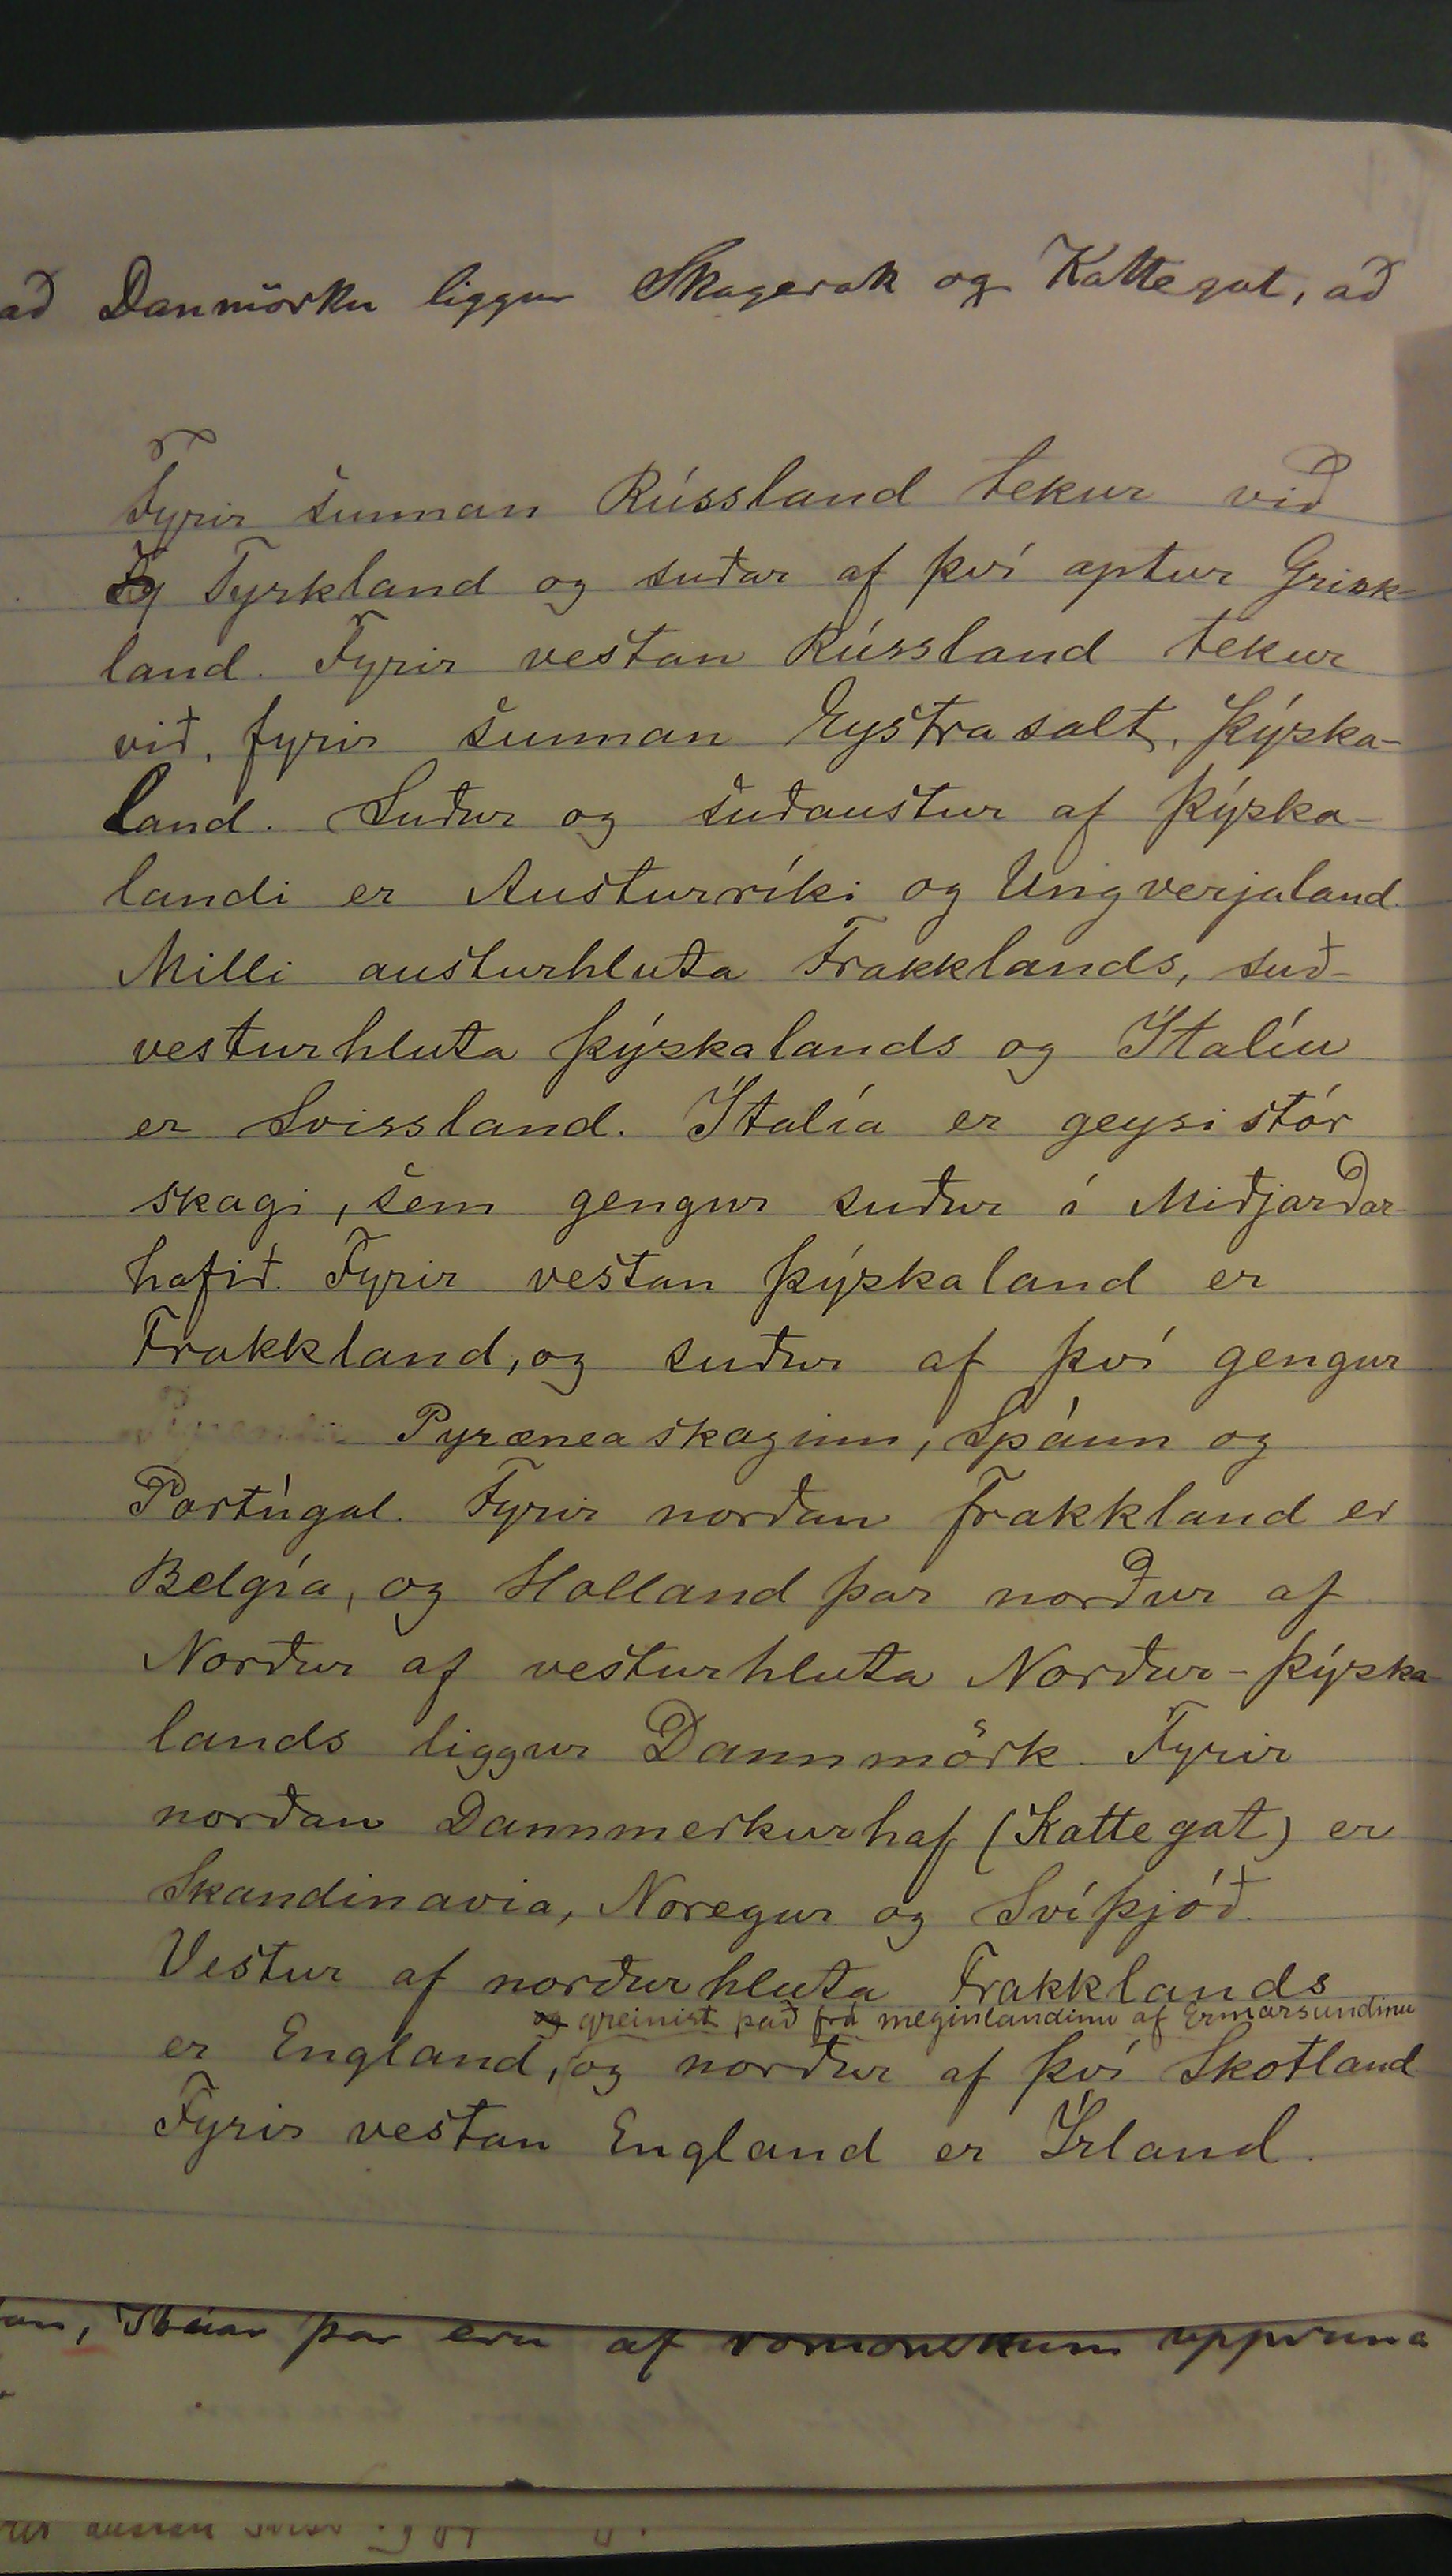 að Danmörku liggur Skagerak og Kattegat, að
Fyrir sunnan Rússland tekur við
Tyrkland og suðar af því aptur Grikk-
land. Fyrir vestan Rússland tekur
við, fyrir sunnan Eystrasalt, Þýzka-
land. Suður og suðaustur af Þýzka-
landi er Austurríki og Ungverjaland.
Milli austurhluta Frakklands, suð-
vesturhluta Þýzkalands og Ítalíu
er Svissland. Ítalía er geysistór
skagi, sem gengur suður í Miðjarðar
hafið. Fyrir vestan Þýzkaland er
Frakkland, og suður af því gengur
Pyræneaskaginn, Spánn og
Portúgal. Fyrir norðan Frakkland er
Belgía, og Holland þar norður af
Norður af vesturhluta Norður-Þýzka
lands liggur Dannmörk. Fyrir
norðan Dannmerkurhaf (Kattegat) er
Skandinavia, Noregur og Svíþjóð.
Vestur af norðurhluta Frakklands
og greinist það frá meginlandinu af Ermarsundinu
er England, og norður af því Skotland
Fyrir vestan England er Írland.
Íbúar þar eru af rómönskum uppruna